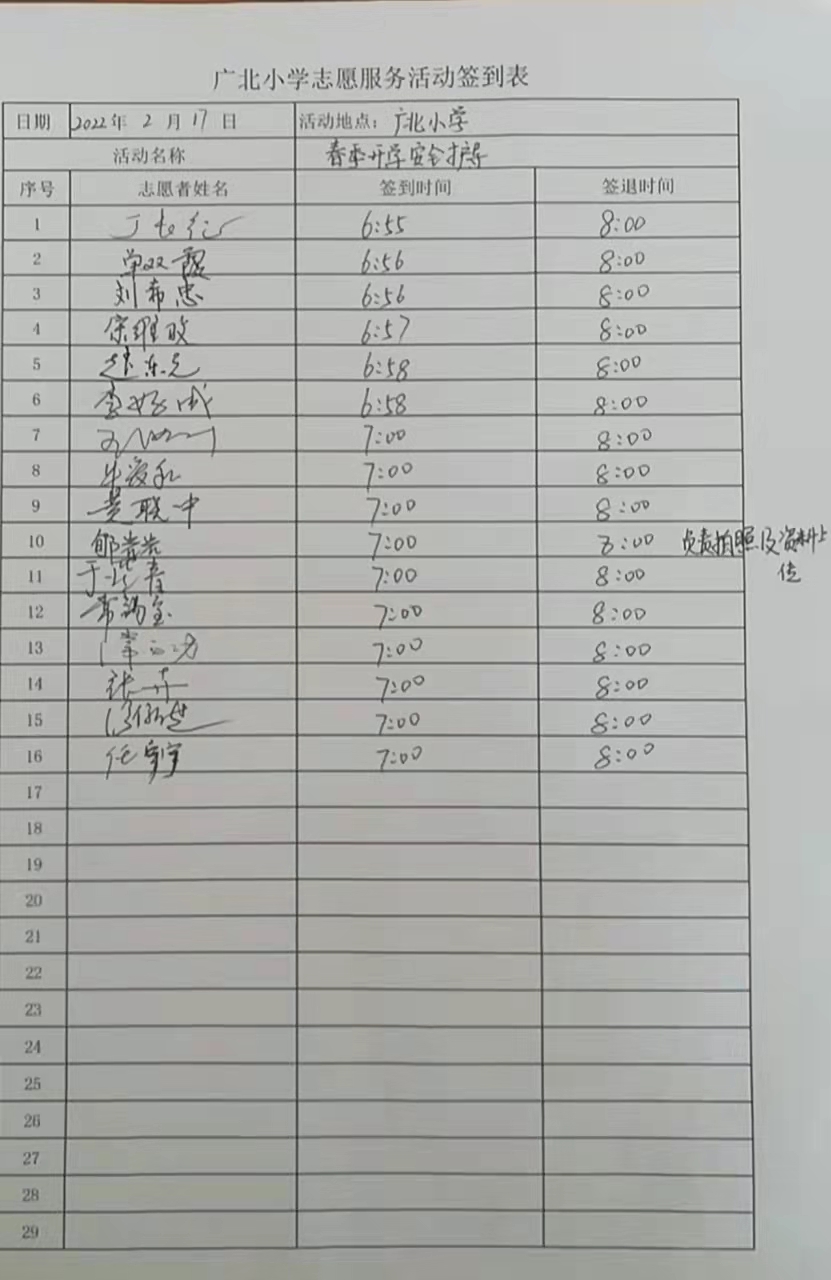 广北小学志愿服务活动签到表
日期 2022年 2 月 17 日 活动地点：广北小学
活动名称 春季开学安全护导
序号 志愿者姓名 签到时间 签退时间
1 6:55 8:00
2 单双霞 6:56 8:00
3 刘希忠 6:56 8:00
4 宗维政 6:57 8:00
5 赵东光 6:58 8:00
6 6:58 8:00
7 7:00 8:00
8 7:00 8:00
9 黄联中 7:00 8:00
10 7:00 8:00 负责拍照及资料上
传
11 7:00 8:00
12 常锡宝 7:00 8:00
13 7:00 8:00
14 7:00 8:00
15 7:00 8:00
16 任宁宁 7:00 8:00
17
18
19
20
21
22
23
24
25
26
27
28
29